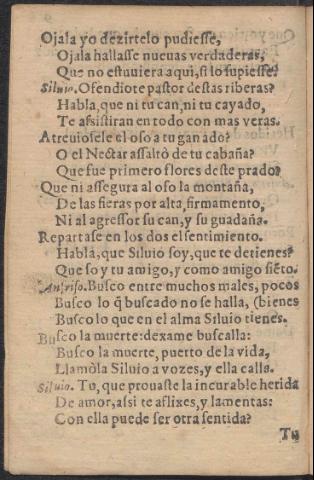 Ojala yo dezirtelo pudiesse,
Ojala hallasse nueuas verdaderas,
Que no estuuiera aqui, si lo supiesse?
Siluio. Ofendiote pastor destas riberas?
Habla, que ni tu can, ni tu cayado,
Te assistiran en todo con mas veras.
Atreuiosele el oso a tu ganado?
O el Nectar assaltò de tu cabaña?
Que fue primero flores deste prado?
Que ni assegura al oso la montaña,
De las fieras por alta, firmamento,
Ni al agressor su can, y su guadaña.
Repartase en los dos el sentimiento.
Habla, que Siluio soy, que te detienes?
Que soy tu amigo, y como amigo siẽto.
Anfriso. Busco entre muchos males, pocos
Busco lo q̃ buscado no se halla, (bienes
Busco lo que en el alma Siluio tienes.
Busco la muerte: dexame buscalla:
Busco la muerte, puerto de la vida,
Llamòla Siluio a vozes, y ella calla.
Siluio. Tu, que prouaste la incurable herida
De amor, assi te aflixes, y lamentas:
Con ella puede ser otra sentida?
Tu